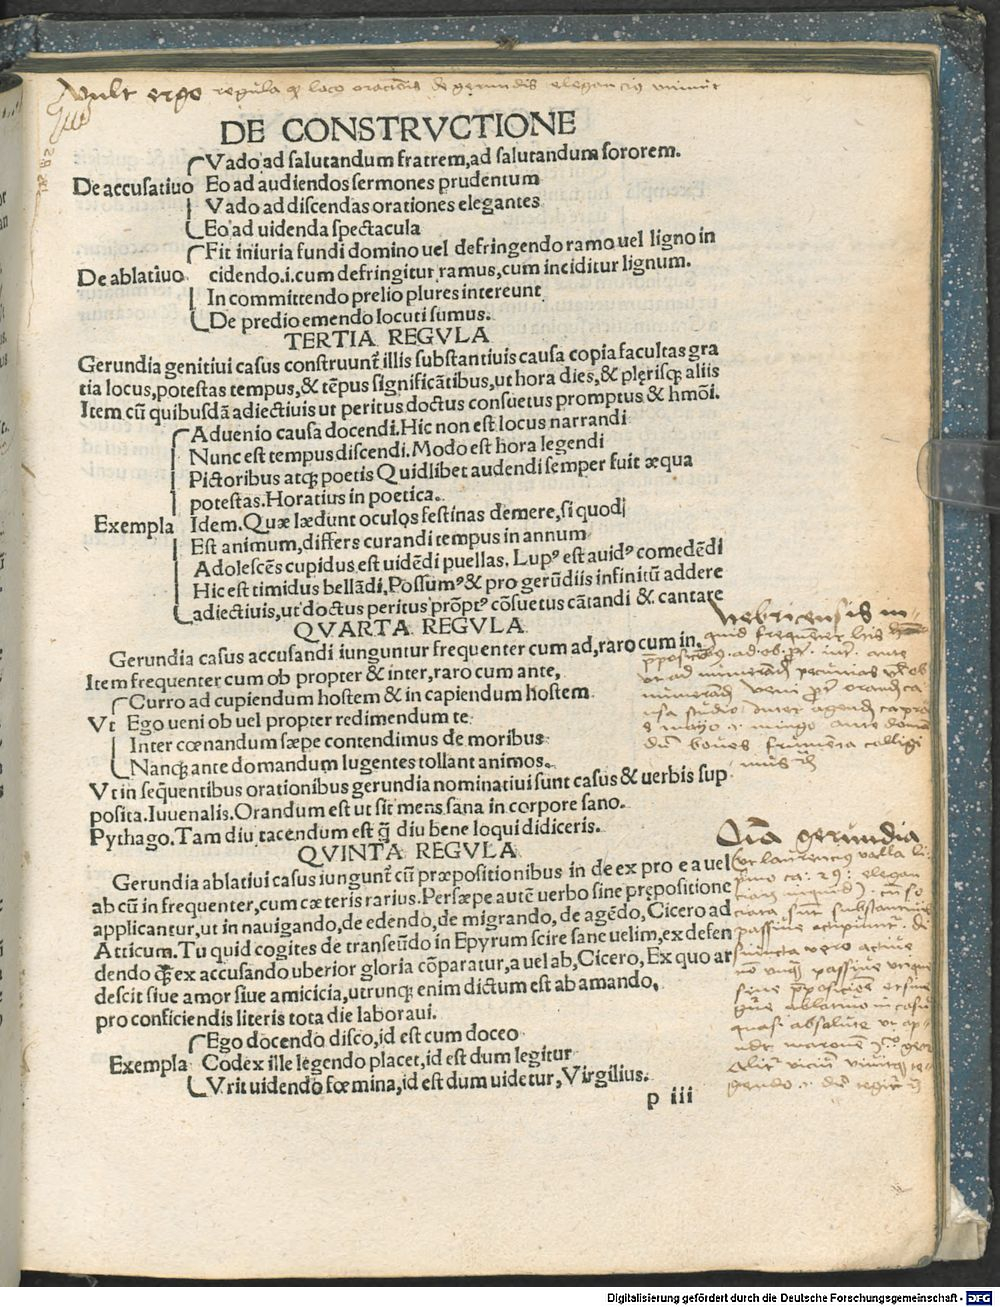 Vult ergo regula loco oracionis de gerundiis elegancius
DE CONSTRVCTIONE
Vado ad salutandum fratrem, ad salutandum sororem.
De accusatiuo Eo ad audiendos sermones prudentum
Vado ad discendas orationes elegantes
Eo ad uidenda spectacula
Fit iniuria fundi domino uel defringendo ramo uel ligno in
De ablatiuo cidendo.i.cum defringitur ramus, cum inciditur lignum.
In committendo prelio plures intereunt
De predio emendo locuti sumus.
TERTIA REGVLA
Gerundia genitiui casus construunt̃ illis substantiuis causa copia facultas gra
tia locus, potestas tempus, & tēpus significātibus, ut hora dies, & plęrisq; aliis
Item cū quibusdā adiectiuis ut peritus doctus consuetus promptus & hmōi.
Aduenio causa docendi. Hic non est locus narrandi
Nunc est tempus discendi. Modo est hora legendi
Pictoribus atq; poetis Quidlibet audendi semper fuit æqua
potestas. Horatius in poetica.
Exempla Idem. Quæ lædunt oculos festinas demere, si quod
Est animum, differs curandi tempus in annum
Adolescēs cupidus est uidēdi puellas. Lupꝰ est auidꝰ comedēdi
Hic est timidus bellādi. Possumꝰ & pro gerūdiis infinitū addere
adiectiuis, ut doctus peritus prōptꝰ cōsuetus cātandi & cantare
QVARTA REGVLA
Gerundia casus accusandi iunguntur frequenter cum ad, raro cum in.
Item frequenter cum ob propter & inter, raro cum ante,
Curro ad cupiendum hostem & in capiendum hostem
Vt Ego ueni ob uel propter redimendum te
Inter cœnandum sæpe contendimus de moribus
Nanq; ante domandum lugentes tollant animos.
Vt in seq̄uentibus orationibus gerundia nominatiui sunt casus & uerbis sup
posita. Iuuenalis. Orandum est ut sit mens sana in corpore sano.
Pythago. Tam diu tacendum est q̄ diu bene loqui didiceris.
QVINTA REGVLA
Gerundia ablatiui casus iungunt̃ cū præpositionibus in de ex pro e a uel
ab cū in frequenter, cum cæteris rarius. Persæpe autē uerbo sine prępositione
applicantur, ut in nauigando, de edendo, de migrando, de agēdo, Cicero ad
Atticum. Tu quid cogites de transeūdo in Epyrum scire sane uelim, ex defen
dendo q̄; ex accusando uberior gloria cōparatur, a uel ab, Cicero, Ex quo ar
descit siue amor siue amicicia, utrunq; enim dictum est ab amando,
pro conficiendis literis tota die laboraui.
Ego docendo disco, id est cum doceo
Exempla Codex ille legendo placet, id est dum legitur
Vrit uidendo fœmina, id est dum uidetur, Virgilius.
p iii
Nebricensis in-
quid
ad ob inter ante
ut ad
ueni
inter agendum
ante
boues frumenta colligi
mus
gerundia
ut laurencius valla li-
primo ca: 29: elegan
substantiuis
passiue
uero actiue
passiue
sine
ablatiuo
quasi absolute